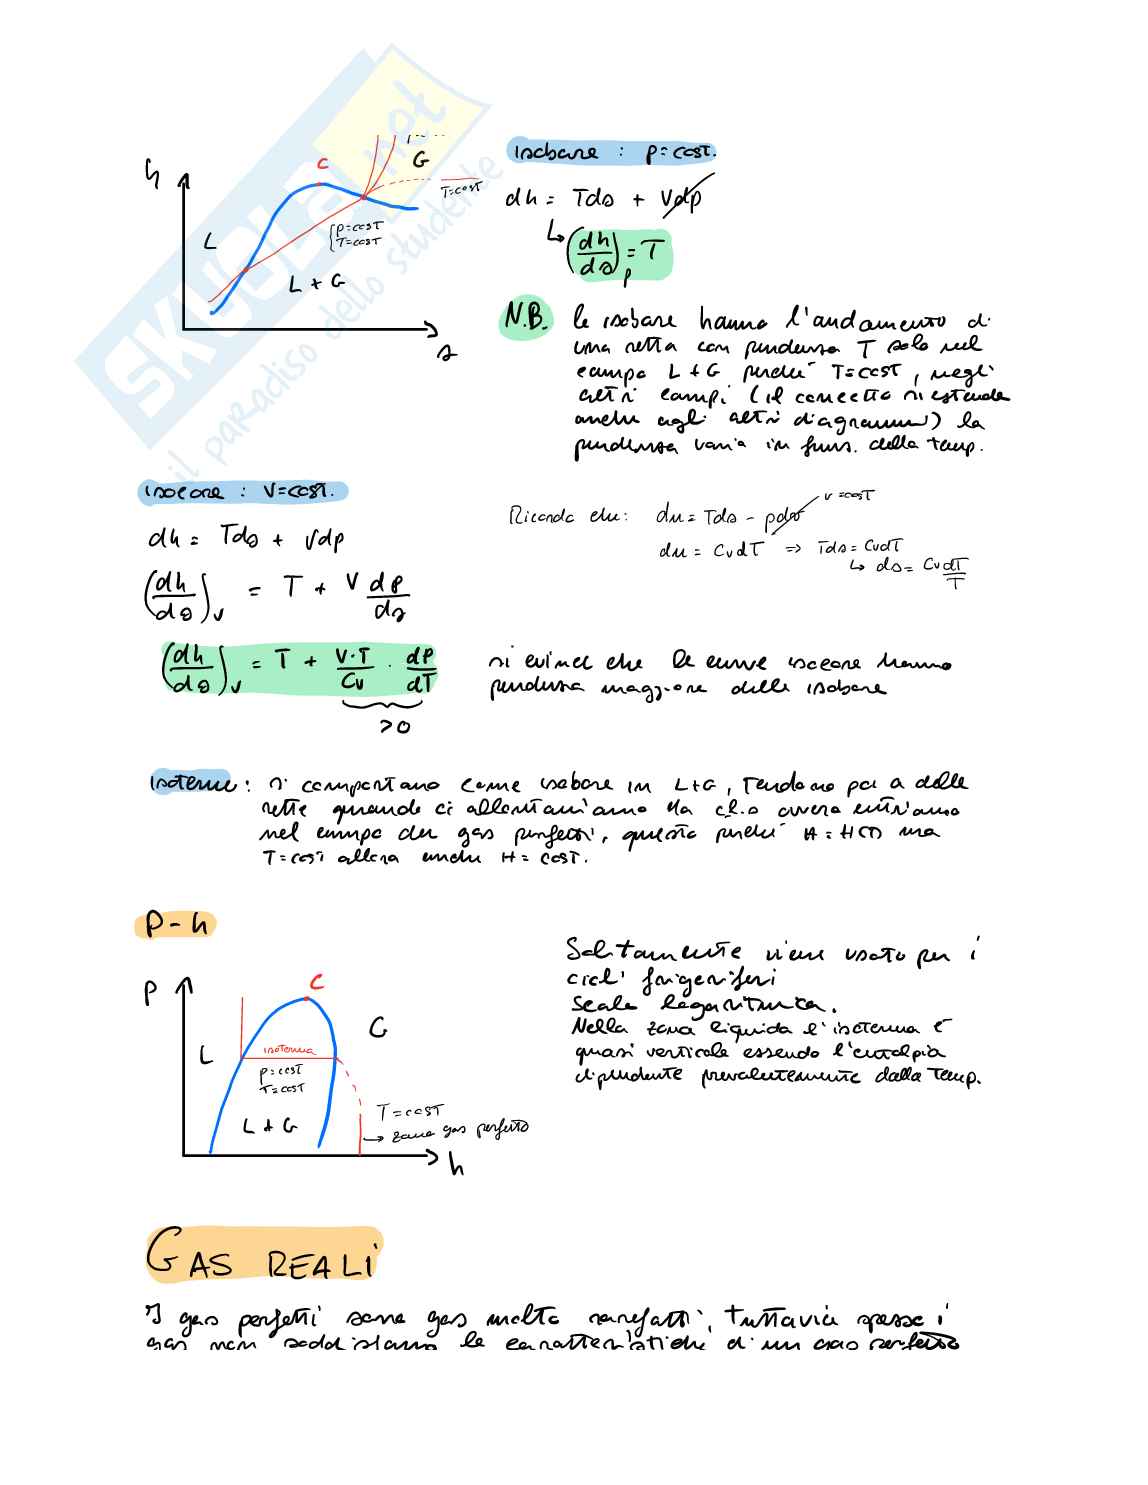 SKUOLA.net
il paradiso dello studente
h
C
G
T=cost
L
{p=cost
T=cost
L + G
s
isobare : p=cost.
dh = Tds + vdp
↳ (dh/ds)p = T
N.B. le isobare hanno l'andamento di
una retta con pendenza T solo nel
campo L+G perché T=cost, negli
altri campi (il concetto si estende
anche agli altri diagrammi) la
pendenza varia in funz. della temp.
isocore : V=cost.
dh = Tds + Vdp
(dh/ds)v = T + V dp/ds
Ricorda che: du = Tds - pdv v=cost
du = CvdT ⇒ Tds = CvdT
↳ ds = Cv dT/T
(dh/ds)v = T + V·T/Cv · dP/dT
>0
si evince che le curve isocore hanno
pendenza maggiore delle isobare
isoterme: si comportano come isobare in L+G, tendono poi a delle
rette quando ci allontaniamo da c.l.s ovvero entriamo
nel campo dei gas perfetti, questo perché H=H(T) ma
T=cost allora anche H=cost.
P-h
P
C
G
L
isoterma
p=cost
T=cost
L+G
T=cost
→ zona gas perfetto
h
Solitamente viene usato per i
cicli frigeriferi
Scala logaritmica.
Nella zona liquida l'isoterma è
quasi verticale essendo l'entalpia
dipendente prevalentemente dalla temp.
GAS REALI
I gas perfetti sono gas molto rarefatti, tuttavia spesso i
gas non soddisfano le caratteristiche di un gas perfetto